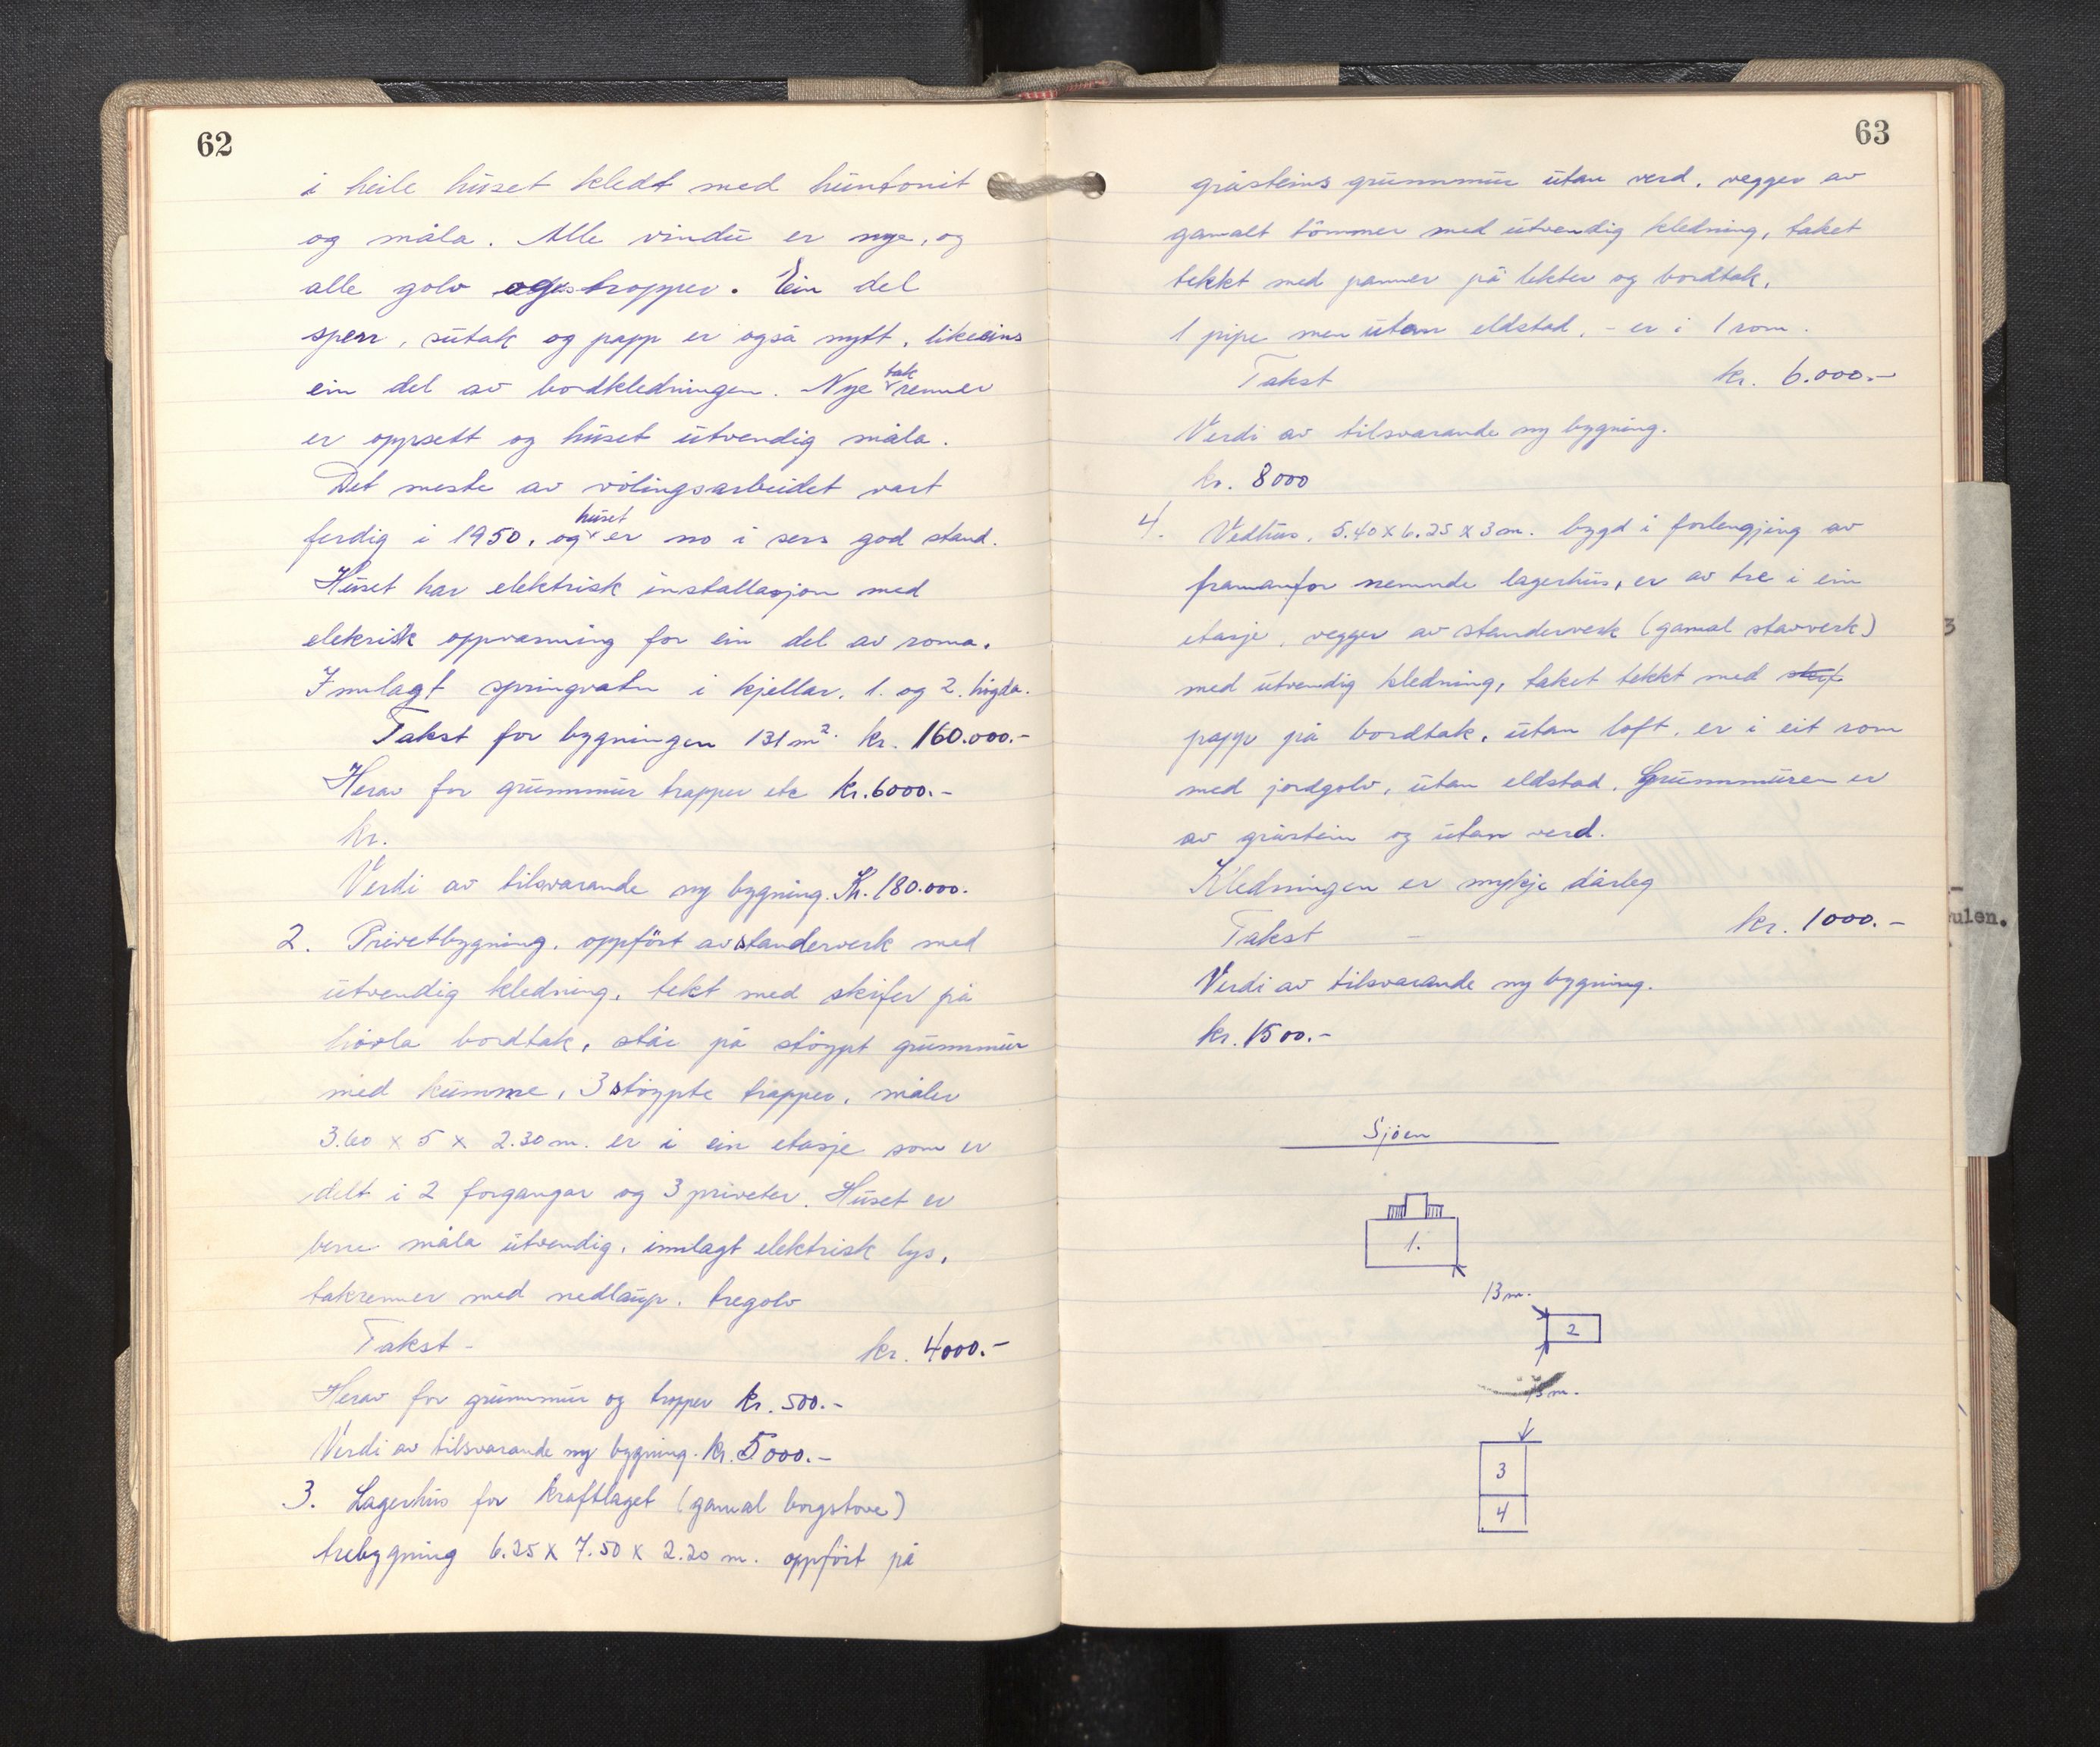 62
i heile huset kledt med huntonit
og måla. Alle vindu er nye, og
alle golv og trapper. Ein del
sperr, sutak og papp er også nytt, likeeins
ein del av bordkledningen. Nye takrenner
er oppsett og huset utvendig måla.
Det meste av vølingsarbeidet vart
ferdig i 1950, og huset er no i sers god stand.
Huset har elektrisk installasjon med
elekrisk oppvarming for ein del av roma.
Innlagt springvatn i kjellar, 1. og 2. høgda.
Takst for bygningen 131 m². kr. 160.000.-
Herav for grunnmur trapper etc kr. 6000.-
kr.
Verdi av tilsvarande ny bygning. Kr. 180.000.
2. Privetbygning, oppført av standerverk med
utvendig kledning, tekt med skifer på
høvla bordtak, står på støypt grunnmur
med kumme, 3 støypte trapper, måler
3.60 x 5 x 2.30 m. er i ein etasje som er
delt i 2 forgangar og 3 priveter. Huset er
berre måla utvendig, innlagt elektrisk lys,
takrenner med nedlaup. tregolv
Takst - kr. 4000.-
Herav for grunnmur og trapper kr. 500.-
Verdi av tilsvarande ny bygning. kr. 5000.-
3. Lagerhus for kraftlaget (gamal borgstove)
trebygning 6.25 x 7.50 x 2.20 m. oppført på
63
gråsteins grunnmur utan verd, vegger av
gamalt tømmer med utvendig kledning, taket
tekkt med panner på lekter og bordtak,
1 pipe men utan eldstad, - er i 1 rom.
Takst kr. 6.000.-
Verdi av tilsvarande ny bygning.
kr. 8000
4. Vedhus, 5.40 x 6.25 x 3 m. bygd i forlengjing av
framanfor nemnde lagerhus, er av tre i ein
etasje, vegger av standerverk (gamal stavverk)
med utvendig kledning, taket tekkt med
papp på bordtak, utan loft, er i eit rom
med jordgolv, utan eldstad. Grunnmuren er
av gråstein og utan verd.
Kledningen er mykje dårleg
Takst - kr. 1000.-
Verdi av tilsvarande ny bygning.
kr. 1500.-
Sjøen
1.
13 m.
2
m.
3
4
3
ulen.